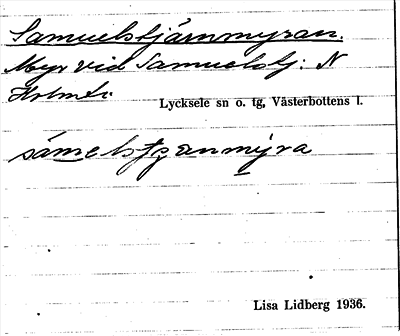 Samuelstjärnmyran.
Myr vid Samuelstj: N
Holmtr.
Lycksele sn o. tg, Västerbottens l.
sámelstjz̨enmýra
Lisa Lidberg 1936.